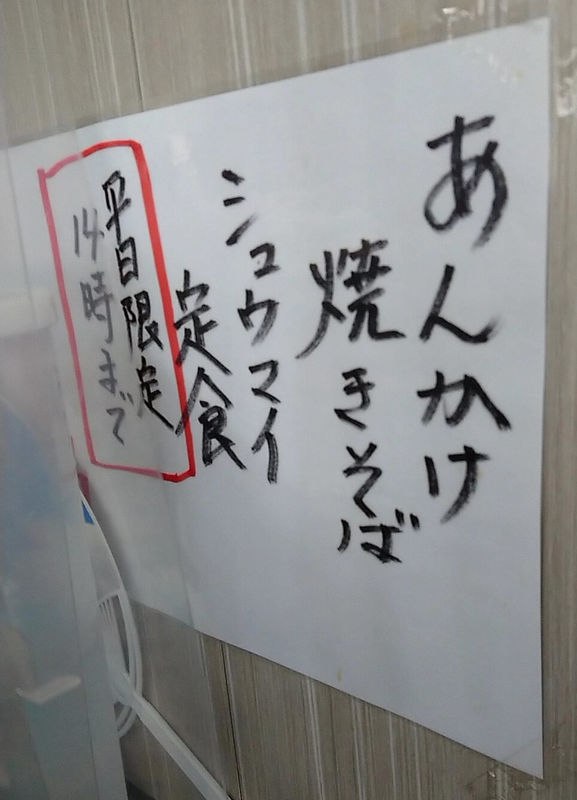 あんかけ
焼きそば
シュウマイ
定食
平日限定
14時まで